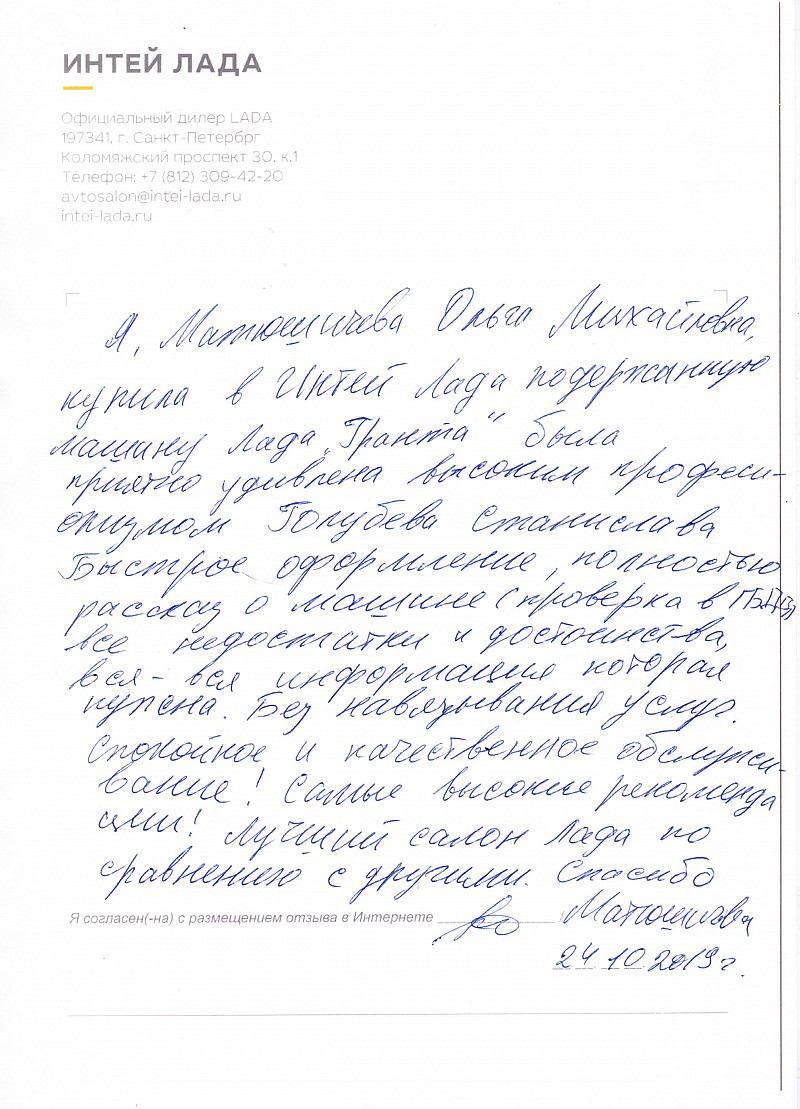 ИНТЕЙ ЛАДА
Официальный дилер LADA
197341, г. Санкт-Петербрг
Коломяжский проспект 30, к.1
Телефон: +7 (812) 309-42-20
avtosalon@intei-lada.ru
intei-lada.ru
Я, Матюшичева Ольга Михайловна,
купила в Интей Лада подержанную
машину Лада „Гранта" была
приятно удивлена высоким професи-
онизмом Голубева Станислава
Быстрое оформление, полностью
рассказ о машине (проверка в ГБДД)
все недостатки и достоинства,
вся-вся информация которая
нужна. Без навязывания услуг.
Спокойное и качественное обслужи-
вание! Самые высокие рекоменда
ции! Лучший салон Лада по
сравнению с другими. Спасибо
Я согласен(-на) с размещением отзыва в Интернете Матюшичева
24.10.2019 г.